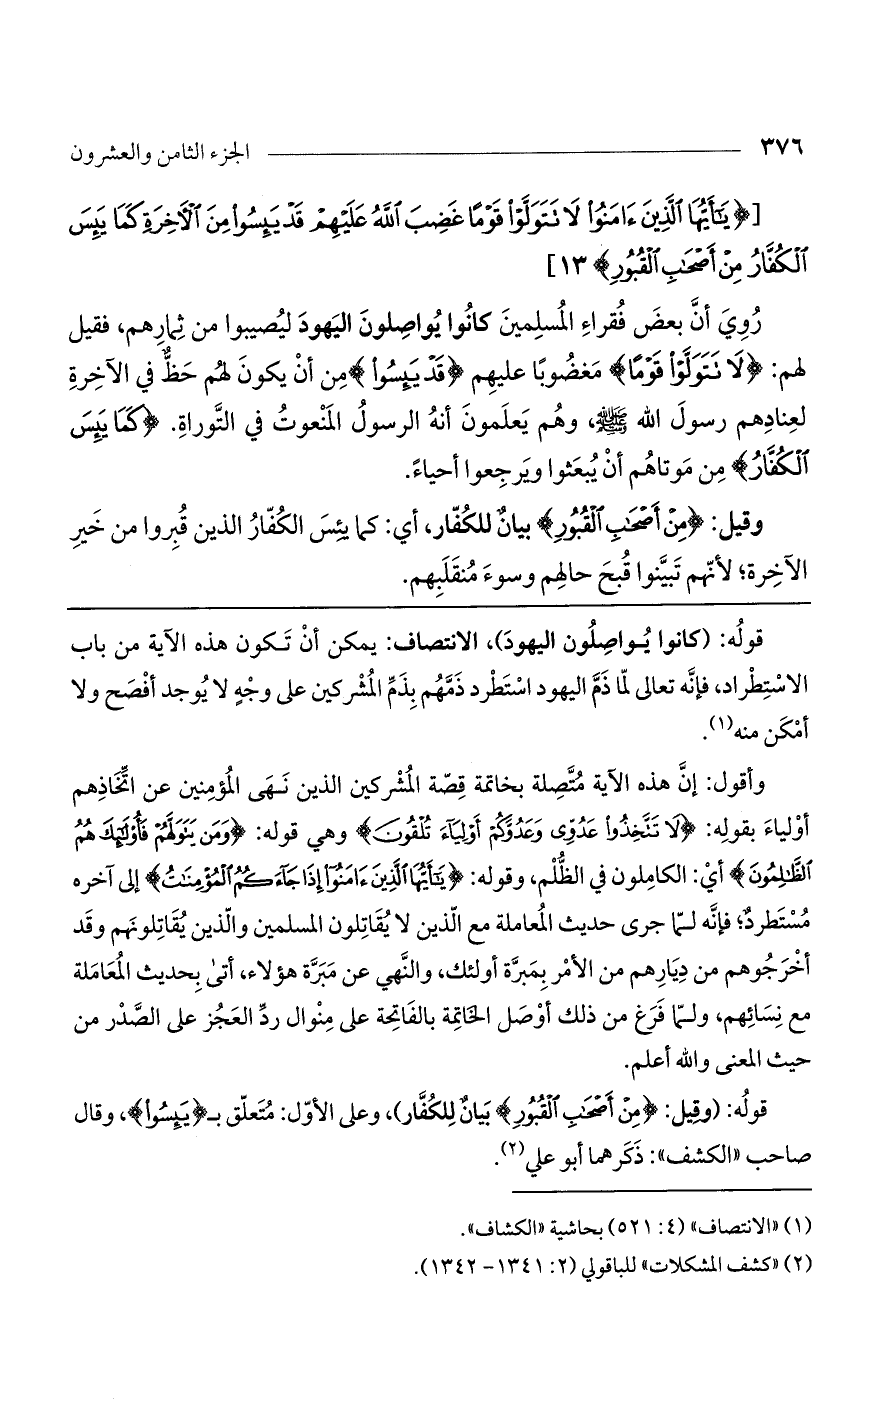 ٣٧٦ الجزء الثامن والعشرون
[﴿يَٰٓأَيُّهَا ٱلَّذِينَ ءَامَنُوا۟ لَا تَتَوَلَّوْا۟ قَوْمًا غَضِبَ ٱللَّهُ عَلَيْهِمْ قَدْ يَئِسُوا۟ مِنَ ٱلْأَخِرَةِ كَمَا يَئِسَ
ٱلْكُفَّارُ مِنْ أَصْحَٰبِ ٱلْقُبُورِ﴾ ١٣]
رُوِيَ أنَّ بعضَ فُقراءِ المُسلِمينَ كانُوا يُواصِلونَ اليَهودَ ليُصيبوا من ثِمارِهم، فقيل
لهم: ﴿لَا تَتَوَلَّوْا۟ قَوْمًا﴾ مَغضُوبًا عليهِم ﴿قَدْ يَئِسُوا۟﴾ مِن أنْ يكونَ لهُم حَظٌّ في الآخِرةِ
لعِنادِهم رسولَ الله ﷺ، وهُم يَعلَمونَ أنهُ الرسولُ المَنْعوتُ في التَّوراةِ. ﴿كَمَا يَئِسَ
ٱلْكُفَّارُ﴾ مِن مَوتاهُم أنْ يُبعَثوا ويَرجِعوا أحياءً.
وقيل: ﴿مِنْ أَصْحَٰبِ ٱلْقُبُورِ﴾ بيانٌ للكُفّار، أي: كما يئِسَ الكفّارُ الذين قُبِروا من خَيرِ
الآخِرة؛ لأنّهم تَبيَّنوا قُبحَ حالِهم وسوءَ مُنقَلَبِهم.
قولُه: (كانوا يُواصِلُون اليهودَ)، الانتصاف: يمكن أنْ تَكون هذه الآية من باب
الاسْتِطْراد، فإنَّه تعالى لمّا ذَمَّ اليهود اسْتَطْرد ذَمَّهُم بِذَمِّ المُشْركين على وجْهٍ لا يُوجد أفْصَح ولا
أمْكَن منه(١).
وأقول: إنَّ هذه الآية مُتَّصِلة بخاتمة قِصّة المُشْركين الذين نَهَى المُؤمِنين عن اتِّخاذِهم
أوْلياءَ بقولِه: ﴿لَا تَنَّخِذُوا۟ عَدُوِّى وَعَدُوَّكُمْ أَوْلِيَآءَ تُلْقُونَ﴾ وهي قوله: ﴿وَمَن يَتَوَلَّهُمْ فَأُو۟لَٰٓئِكَ هُمُ
ٱلظَّٰلِمُونَ﴾ أيْ: الكامِلون في الظُّلْم، وقوله: ﴿يَٰٓأَيُّهَا ٱلَّذِينَ ءَامَنُوٓا۟ إِذَا جَآءَكُمُ ٱلْمُؤْمِنَٰتُ﴾ إلى آخره
مُسْتَطردٌ؛ فإنَّه لـمّا جرى حديث المُعاملة مع الّذين لا يُقَاتِلون المسلمين والّذين يُقَاتِلونَهم وقَد
أخْرَجُوهم من دِيَارِهم من الأمْر بِمَبرَّة أولئك، والنَّهي عن مَبَرَّة هؤلاء، أتىٰ بِحديث المُعَامَلة
مع نِسَائِهم، ولـمّا فَرَغ من ذلك أوْصَل الخَاتِمة بالفَاتِحة على مِنْوال ردِّ العَجُز على الصَّدْر من
حيث المعنى والله أعلم.
قولُه: (وقِيل: ﴿مِنْ أَصْحَٰبِ ٱلْقُبُورِ﴾ بَيَانٌ لِلكُفَّار)، وعلى الأوّل: مُتَعلّق بـ﴿يَئِسُوا۟﴾، وقال
صاحب «الكشف»: ذَكَرهما أبو علي(٢).
(١) «الانتصاف» (٤: ٥٢١) بحاشية «الكشاف».
(٢) «كشف المشكلات» للباقولي (٢: ١٣٤١- ١٣٤٢).